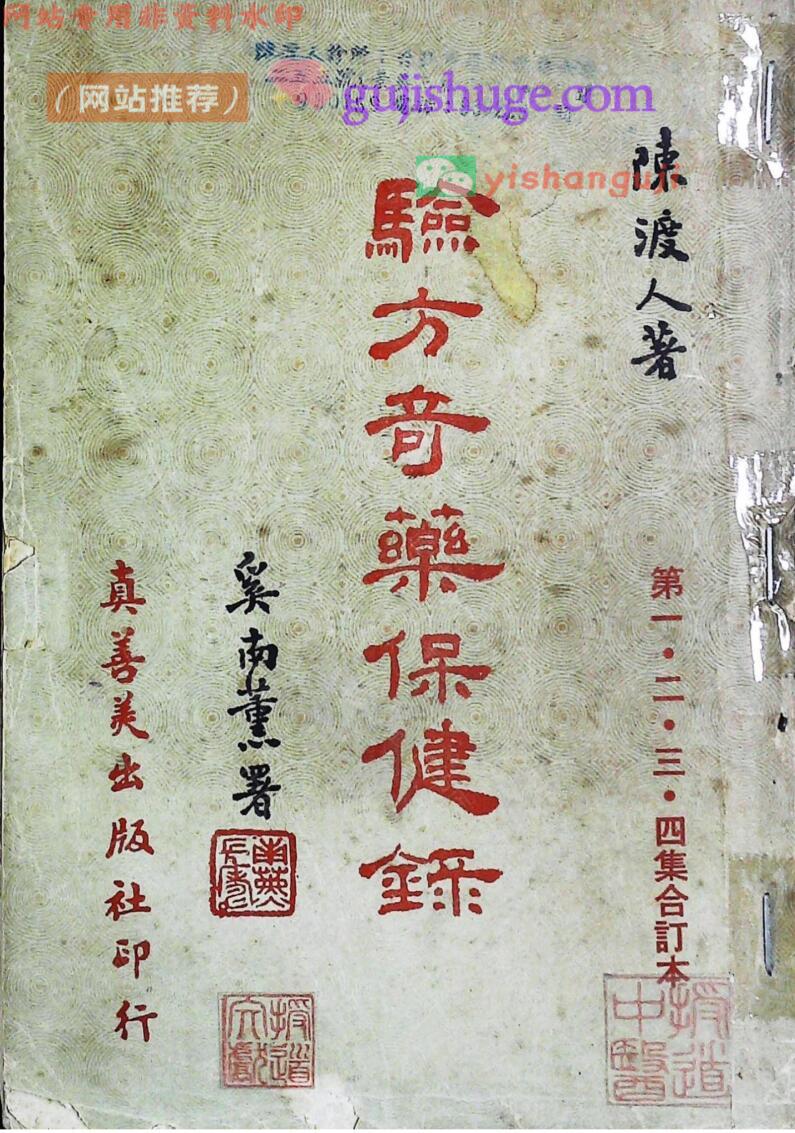 网站专用非资料水印
（网站推荐）
gujishuge.com
yishanguji
陳渡人著
第一·二·三·四集合訂本
驗方奇藥保健錄
奚南薰署
真善美出版社印行
授道中醫